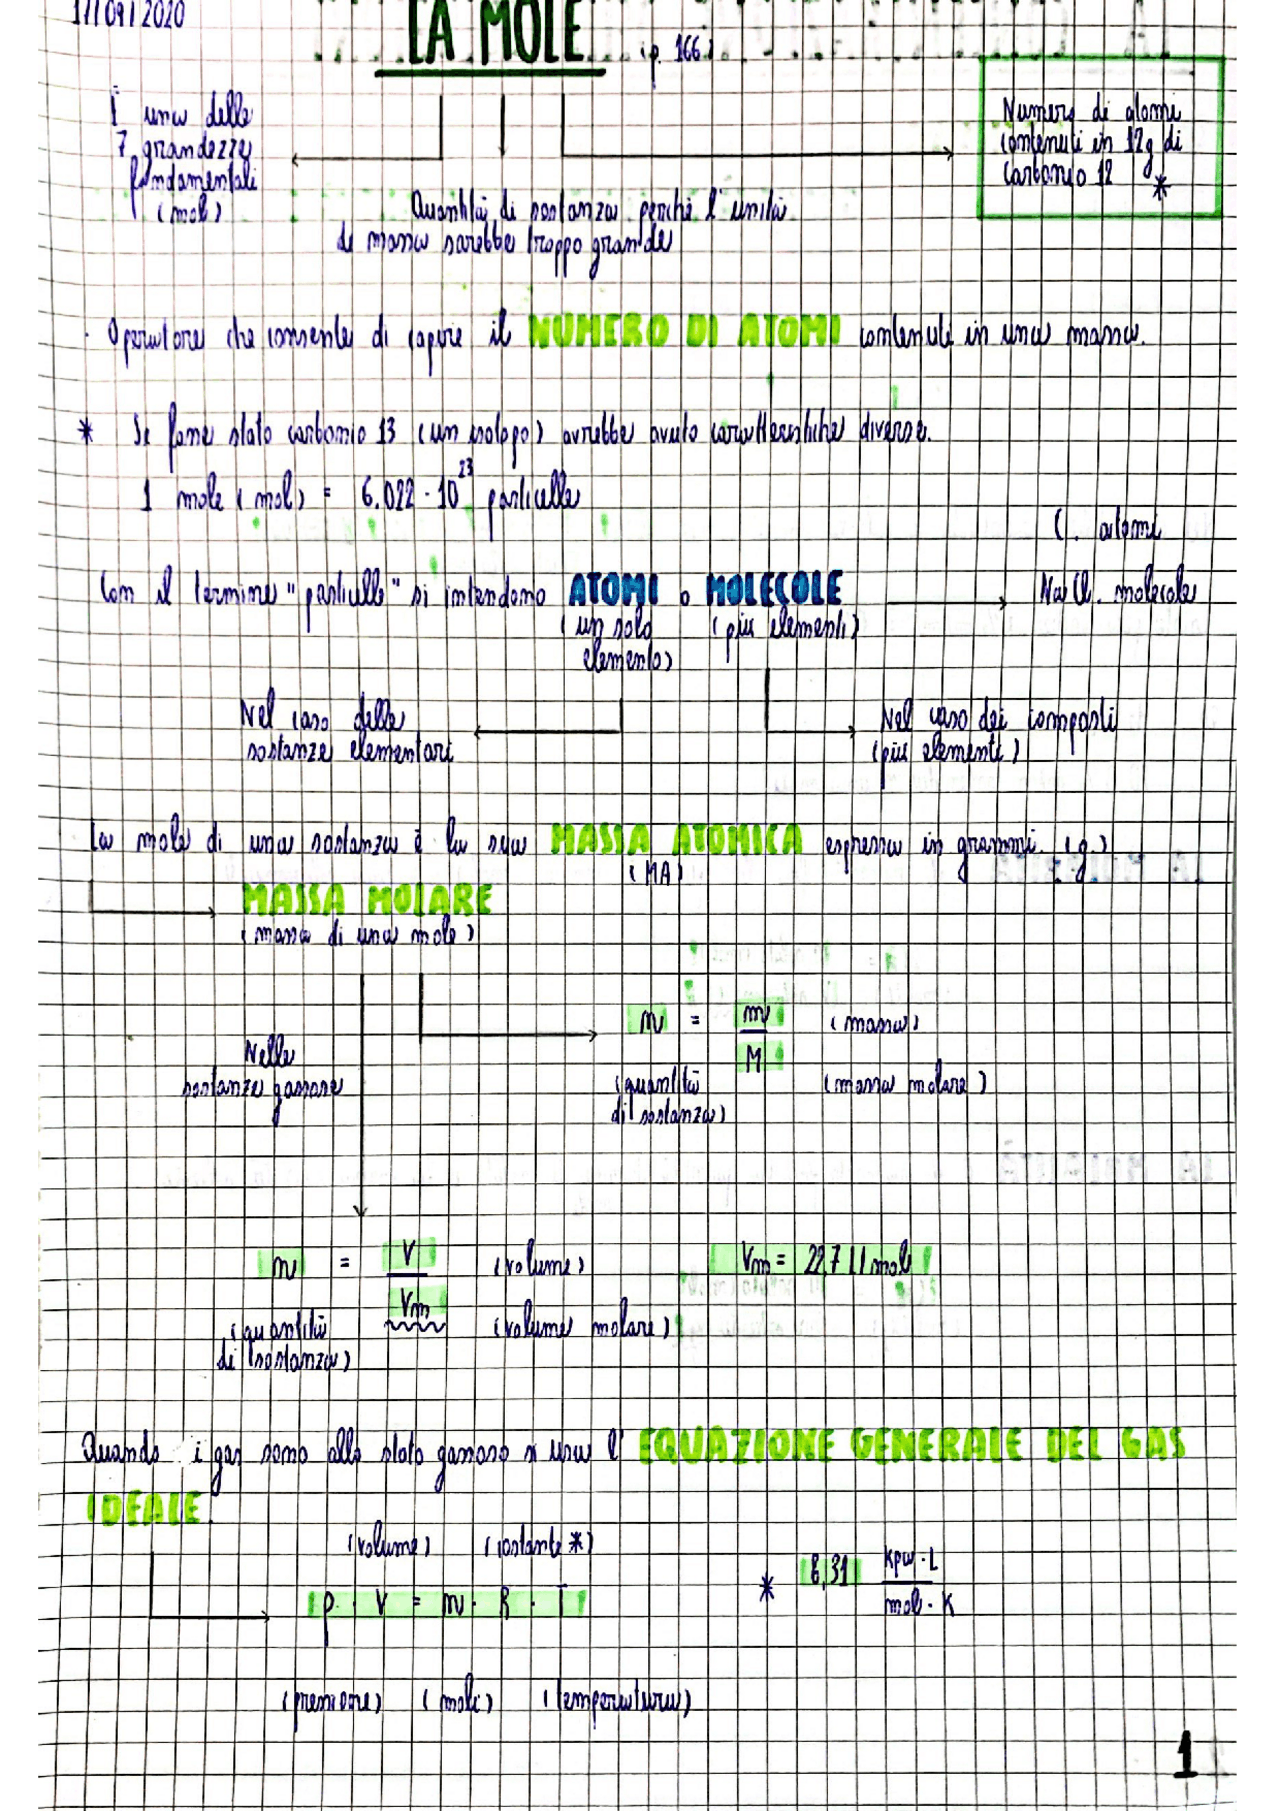 17/09/2020
LA MOLE (p. 166)
È una delle
7 grandezze
fondamentali
(mol)
Quantità di sostanza perché l'unità
di massa sarebbe troppo grande
Numero di atomi
contenuti in 12g di
Carbonio 12 *
· Operatore che consente di capire il NUMERO DI ATOMI contenuti in una massa.
* Se fosse stato carbonio 13 (un isotopo) avrebbe avuto caratteristiche diverse.
1 mole (mol) = 6.022 · 10²³ particelle
C. atomi
Con il termine "particelle" si intendono ATOMI o MOLECOLE → NaCl. molecole
(un solo elemento) (più elementi)
Nel caso delle
sostanze elementari
Nel caso dei composti
(più elementi)
La mole di una sostanza è la sua MASSA ATOMICA espressa in grammi. (g.)
(MA)
MASSA MOLARE
(massa di una mole)
n = m / M
(massa)
(quantità
di sostanza)
(massa molare)
Nelle
sostanze gassose
n = V / Vm
(volume)
Vm = 22,7 L/mol
(quantità
di sostanza)
(volume molare)
Quando i gas sono allo stato gassoso si usa l'EQUAZIONE GENERALE DEL GAS
IDEALE.
(volume) (costante *)
p · V = n · R · T
* 8,31 kPa · L / mol · K
(pressione) (moli) (temperatura)
1